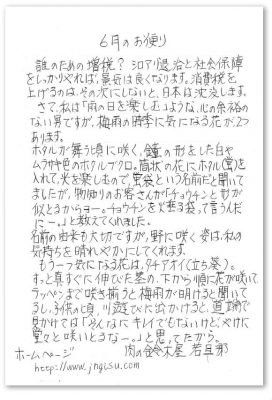 6月のお便り
誰のための増税？シロアリ退治と社会保障
をしっかりやれば、景気は良くなります。消費税を
上げるのは、その次にしないと、日本は沈没します。
さて、私は「雨の日を楽しむ」ような、心の余裕の
ない男ですが、梅雨の時季に気になる花が、2つ
あります。
ホタルが舞う頃に咲く、鐘の形をした白や
ムラサキ色のホタルブクロ。筒状の花にホタル(蛍)を
入れて、光を楽しむので、蛍袋という名前だと聞いて
ましたが、物知りのお客さんが「チョウチンと
似とるからヨー。チョウチンを火垂る袋って言うんだ
にー。」と教えてくれました。
名前の由来も大切ですが、野に咲く姿は、私の
気持ちを晴れやかにしてくれます。
もう一つ気になる花は、タチアオイ(立ち葵)。
すっと真すぐに伸びた茎の、下から順に花が咲いて
ラッパまで咲き揃うと梅雨が明けると聞いて
るし、子供の頃、川遊びに出かけると、道端で
見かけては「そんなにキレイでもないけど、やけに
堂々と咲いとるなー。」と思ってたから。
ホームページ 肉の鈴木屋 若旦那
http://www.jngisu.com